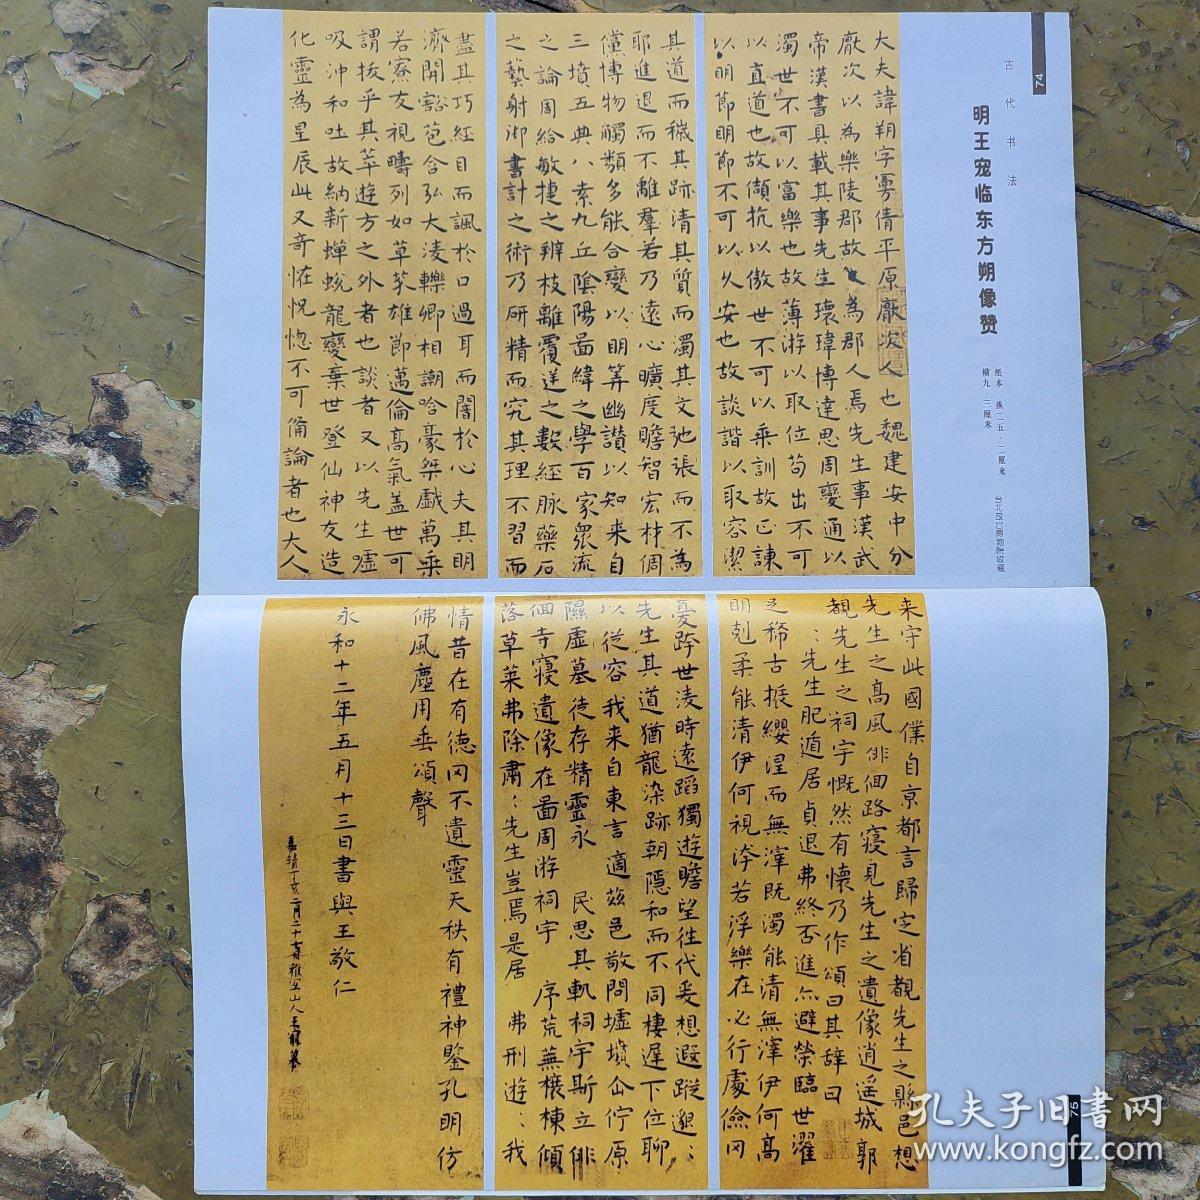 74
古代书法
明王宠临东方朔像赞
纸本 纵二五·二厘米
台北故宫博物院收藏
大夫諱朔字曼倩平原厭次人也魏建安中分
厭次以為樂陵郡故又為郡人焉先生事漢武
帝漢書具載其事先生瓌瑋博達思周變通以
濁世不可以富樂也故薄游以取位苟出不可
以直道也故頡抗以傲世不可以乘訓故正諫
以明節明節不可以久安也故談諧以取容潔
其道而穢其跡清其質而濁其文弛張而不為
耶進退而不離羣若乃遠心曠度瞻智宏材倜
儻博物觸類多能合變以明筭幽讚以知來自
三墳五典八素九丘陰陽啚緯之學百家衆流
之論周給敏捷之辯枝離覆逆之數經脉藥石
之藝射御書計之術乃研精而究其理不習而
盡其巧經目而諷於口過耳而闇於心夫其明
濟開豁苞含弘大淩轢卿相謿哈豪桀戲萬乘
若寮友視疇列如草芥雄節邁倫高氣盖世可
謂拔乎其萃遊方之外者也談者又以先生嘘
吸沖和吐故納新蟬蛻龍變棄世登仙神友造
化靈為星辰此又奇恠怳惚不可備論者也大人
来守此國僕自京都言歸定省覩先生之縣邑想
先生之高風俳佪路寑見先生之遺像逍遥城郭
覩先生之祠宇慨然有懷乃作頌曰其辞曰
:先生肥遁居貞退弗終否進亦避榮臨世濯
足稀古振纓涅而無滓既濁能清無滓伊何高
明剋柔能清伊何視洿若浮樂在必行處儉罔
憂跨世淩時遠蹈獨遊瞻望往代爰想遐蹤邈:
先生其道猶龍染跡朝隱和而不同棲遲下位聊
以從容我来自東言適兹邑敬問墟墳佇原
隰虚墓徒存精靈永 民思其軌祠宇斯立俳
佪寺寑遺像在啚周游祠宇 序荒蕪榱棟傾
落草莱弗除肅:先生豈焉是居 弗刑遊:我
情昔在有德罔不遺靈天秩有禮神鑒孔明仿
佛風塵用垂頌聲
永和十二年五月十三日書與王敬仁
75
孔夫子旧书网
www.kongfz.com